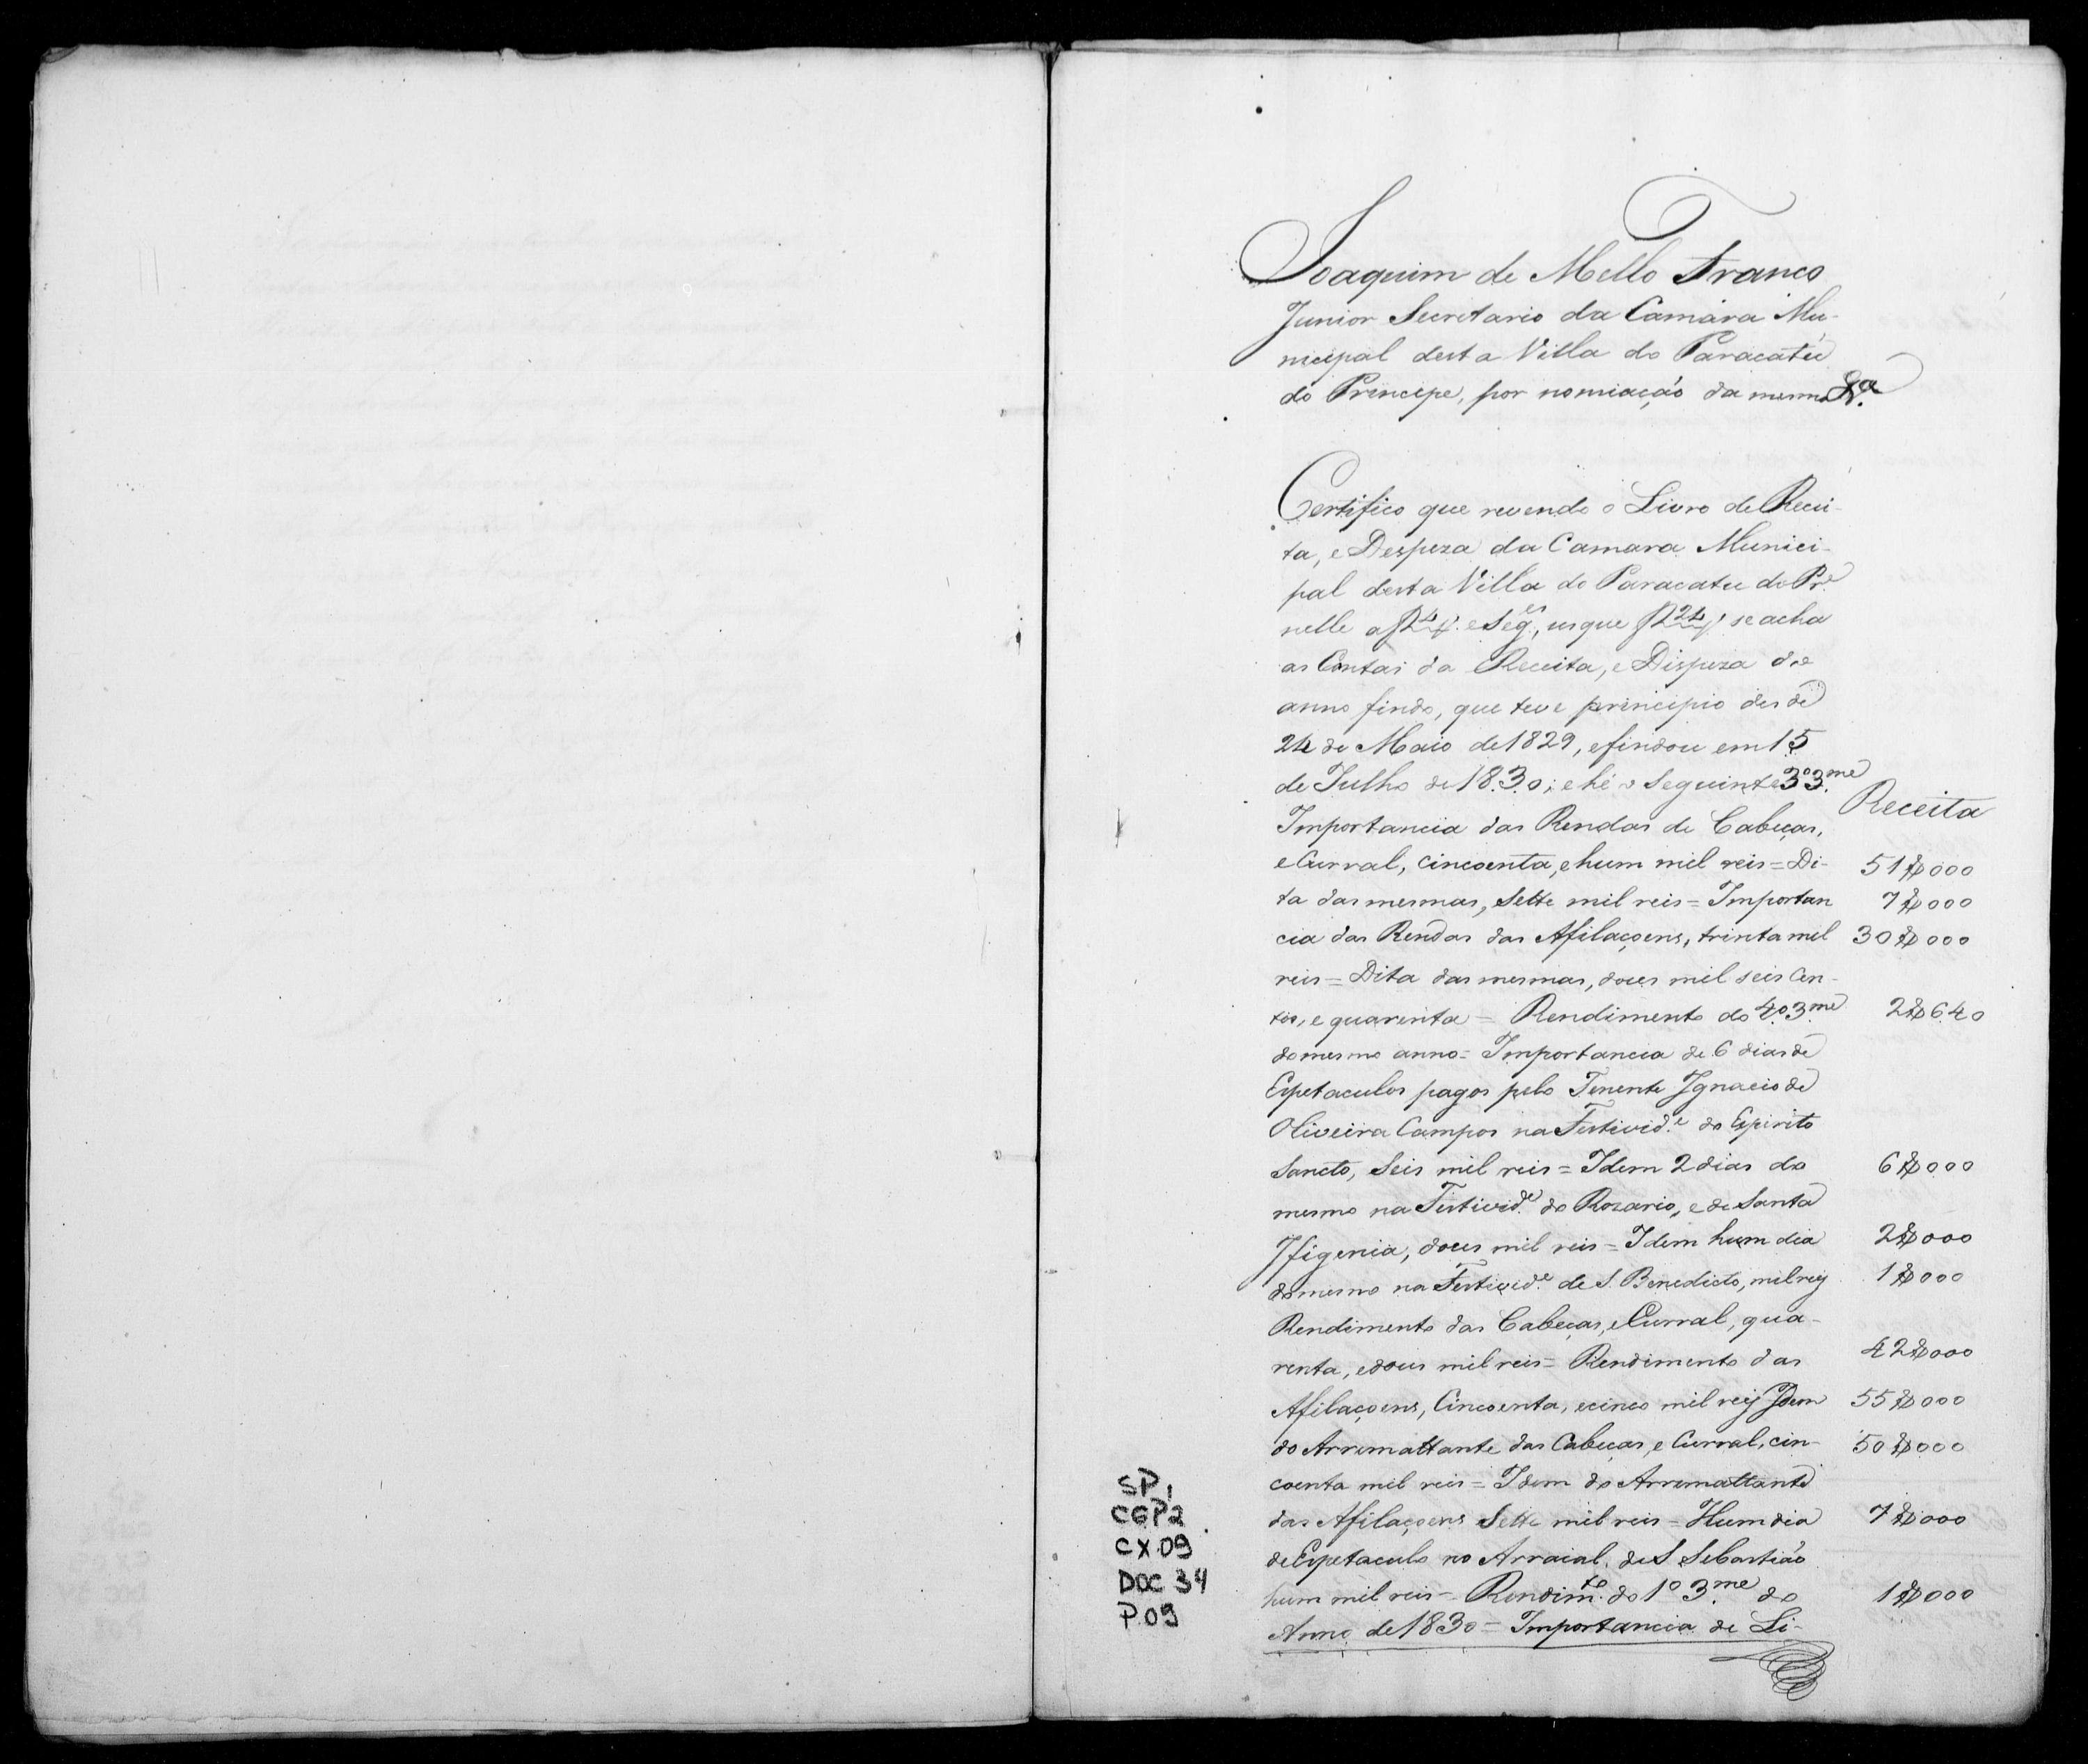 Joaquim de Mello Franco
Junior Secretario da Camara Mu-
nicipal desta Villa do Paracatú
do Principe, por nomiação da mesma &ª.
Certifico que revendo o Livro de Recei-
ta, e Despeza da Camara Munici-
pal desta Villa do Paracatu do Pr.e
nelle a f 24 e Seg.es, usque f 24 se acha
as Contas da Receita, e Dispeza do
anno findo, que teve principio des de
24 de Maio de 1829, e findou em 15
de Julho de 1830; e hé o Seguinte 3º 3.me
Receita
Importancia das Rendas de Cabeças,
e Curral, cincoenta, e hum mil reis = Di- 51$000
ta das mesmas, Sette mil reis = Importan 7$000
cia das Rendas das Afilaçoens, trinta mil 30$000
reis = Dita das mesmas, dous mil seis Cen-
tos, e quarenta = Rendimento do 4º 3.me 2$640
do mesmo anno = Importancia de 6 dias de
Espetaculos pagos pelo Tenente Ignacio de
Oliveira Campos na Festivid.e do Espirito
Sancto, Seis mil reis = Idem 2 dias do 6$000
mesmo na Festivid.e do Rozario, e de Santa
Ifigenia, dous mil reis = Idem hum dia 2$000
do mesmo na Festivid.e de S. Benedicto, mil reis 1$000
Rendimento das Cabeças, e Curral, qua-
renta, e dous mil reis = Rendimento das 42$000
Afilaçoens, Cincoenta, e cinco mil reis Idem 55$000
do Arremattante das Cabeças, e Curral, cin- 50$000
coenta mil reis = Idem do Arremattante
das Afilaçoens Sette mil reis = Hum dia 7$000
de Espetaculo no Arraial de S Sebastião
hum mil reis = Rendim.to do 1º 3.me do 1$000
Anno de 1830 = Importancia de Li-
SP1
CGP2
CX.09
DOC 34
P.09